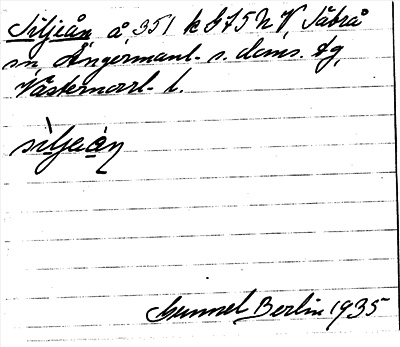 Siljeån å 351 k G 75 N V, Säbrå
sn, Ångermanl. s. doms. tg,
Västernorrl. l.
siljeån
Gunnel Berlin 1935